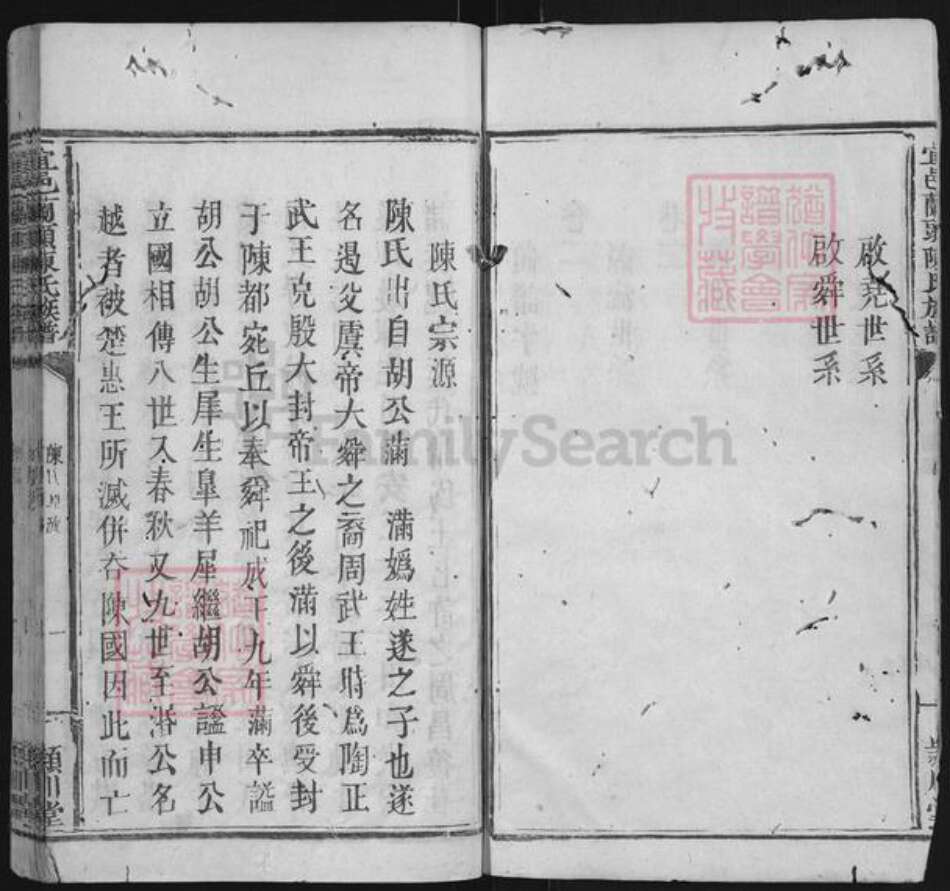 宜邑蘭頭陳氏族譜
啟堯世系
啟舜世系
陳氏宗源
陳氏出自胡公滿滿媯姓遂之子也遂
名遏父虞帝大舜之裔周武王時為陶正
武王克殷大封帝王之後滿以舜後受封
于陳都宛丘以奉舜祀成王九年滿卒謚
胡公胡公生犀生皐羊犀繼胡公謚申公
立國相傳八世入春秋又九世至湣公名
越者被楚惠王所滅併吞陳國因此而亡
宜邑蘭頭陳氏族譜
一
潁川堂
FamilySearch